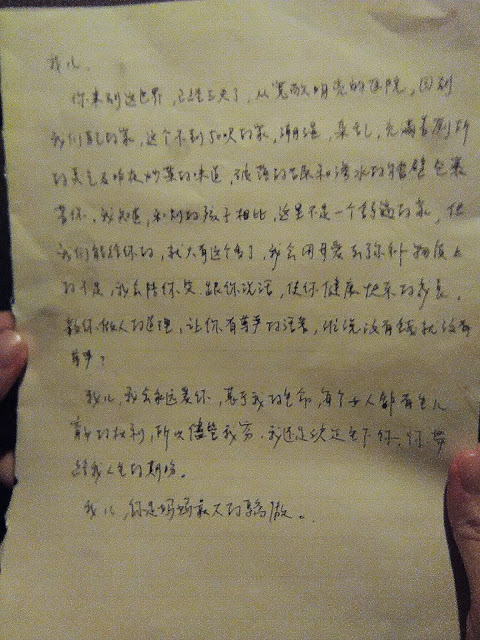 我儿，
你来到这世界，已经三天了，从宽敞明亮的医院，回到
我们的家，这个不到50呎的家，潮湿，杂乱，充满着厕所
的臭气及昨夜炒菜的味道，破落的古床和渗水的墙壁包裹
着你，我知道，和别的孩子相比，这里不是一个舒适的家，但
我们能给你的，就只有这个了，我会用母爱去弥补物质上
的不足，我会陪你笑，跟你说话，使你健康快乐的成长，
教你做人的道理，让你有尊严的活着，谁说没有钱就没有
尊严？
我儿，我会永远爱你，甚于我的生命，每个女人都有生儿
育女的权利，所以尽管我穷，我还是决定生下你，你带
给我人生的期盼。
我儿，你是妈妈最大的骄傲。